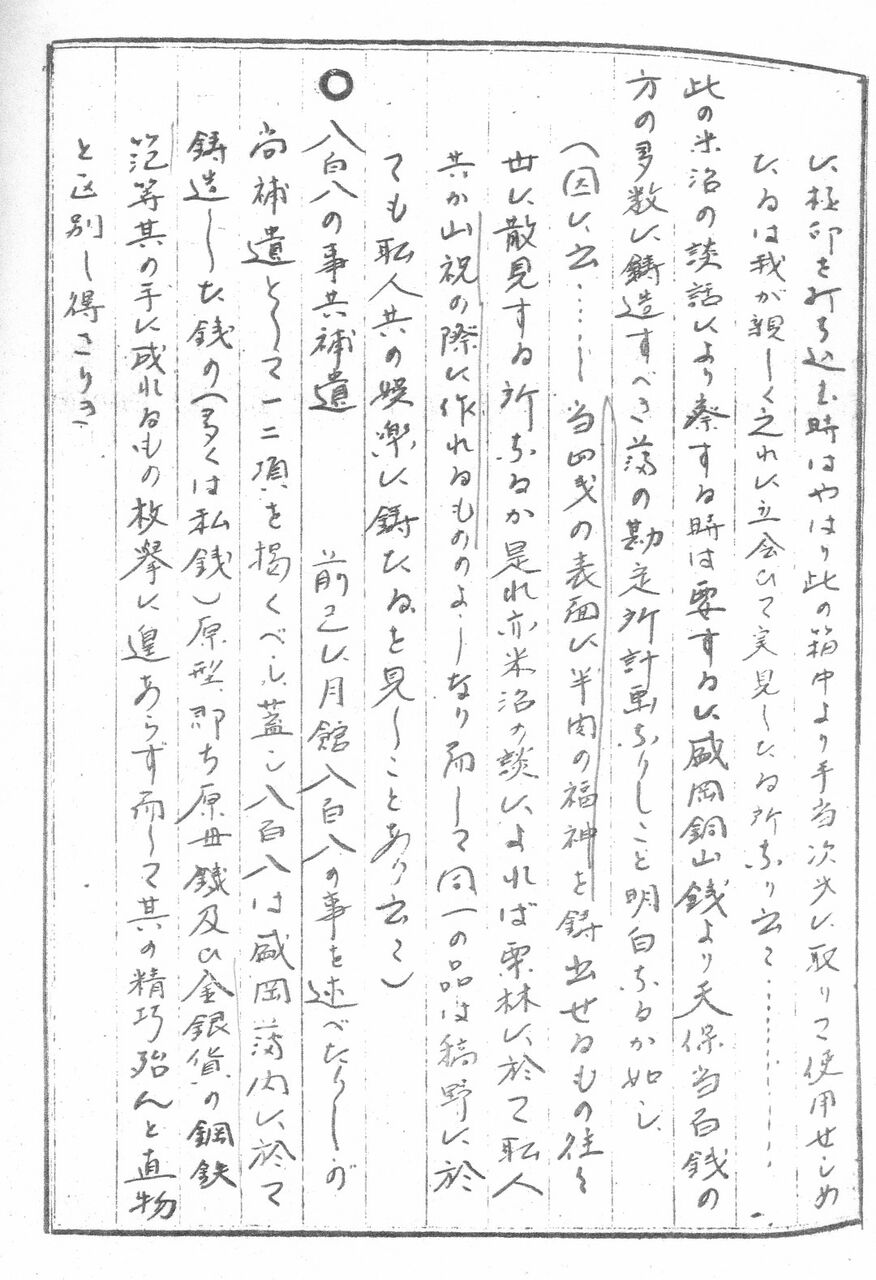 い極印を打ち込む時はやはり此の箱中より手当次才い取りて使用せしめ
たるは我が親しく之れい立会ひて実見したる所なり云々…………
此の米治の談話いより察する時は要するい盛岡銅山銭より天保当百銭の
方の多数い鋳造すべき藩の勘定所計画なりしこと明白なるか如し
(因い云……当四戋の表面い半肉の福神を鋳出せるもの往々
世い散見する所なるか是れ亦米治の談いよれば栗林い於て職人
共か山祝の際い作れるもののよしなり而して同一の品は稿野い於
ても職人共の娯楽い鋳たるを見しことあり云々)
○八百八の事共補遺 前己い月館八百八の事を述べたりしが
尚補遺として一二項を掲くべし蓋し八百八は盛岡藩内い於て
鋳造した銭の(多くは私銭)原型、即ち原母銭及ひ金銀貨の鋼鉄
范等其の手い成れるもの枚挙い遑あらず而して其の精巧殆んと直物
と区別し得さりき